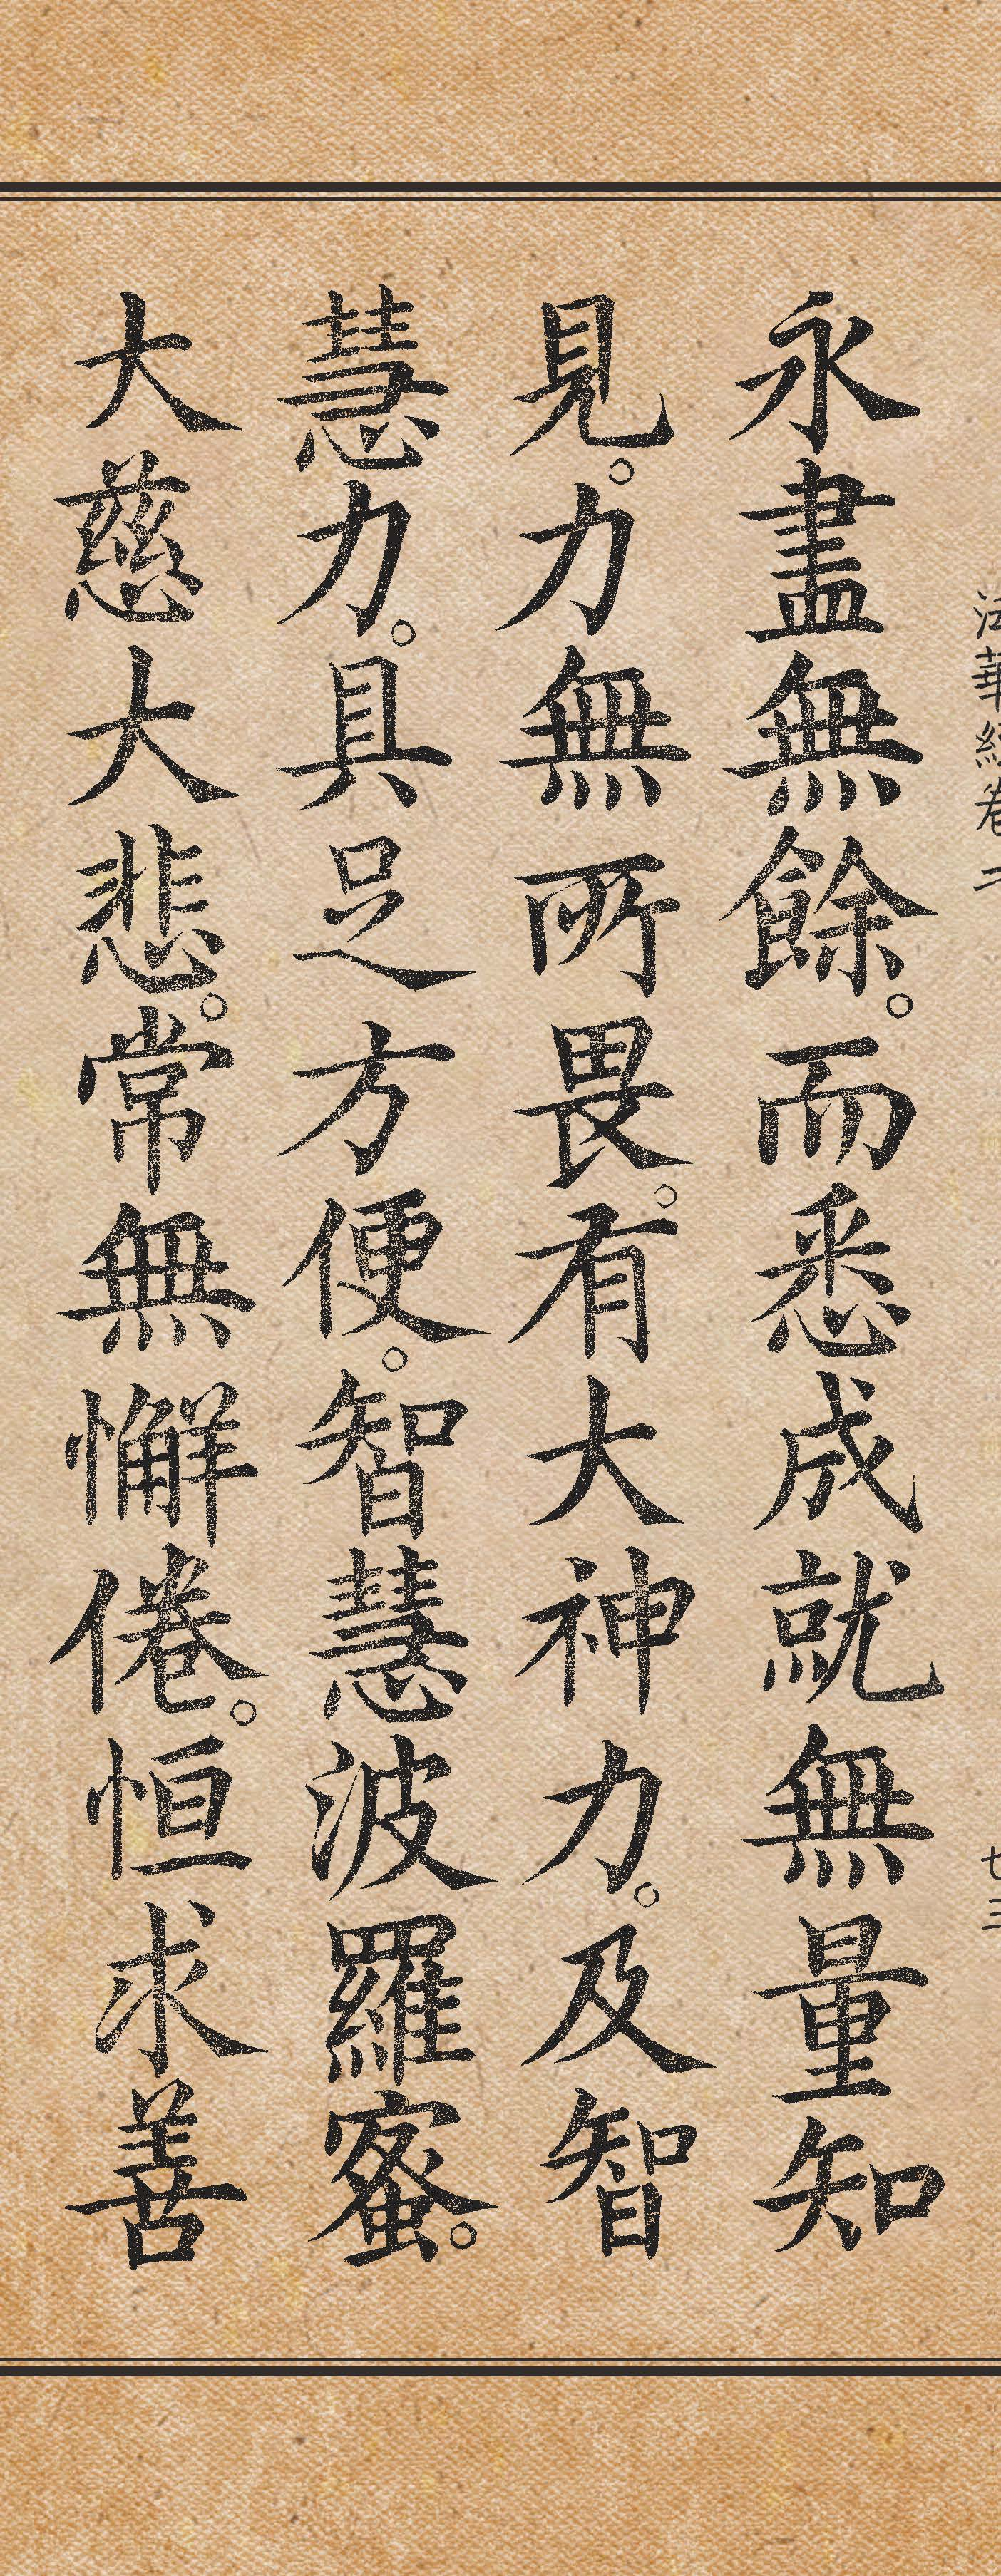 法華經卷二
七三
永盡無餘。而悉成就無量知
見。力無所畏。有大神力。及智
慧力。具足方便。智慧波羅蜜。
大慈大悲。常無懈倦。恒求善